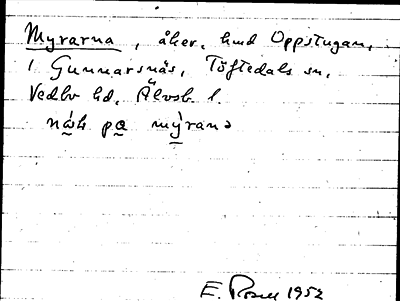 Myrarna, åker, hmd Oppstugan,
i Gunnarsnäs, Töftedals sn,
Vedbo hd, Älvsb. l.
pa myrana
E. Rosell 1952